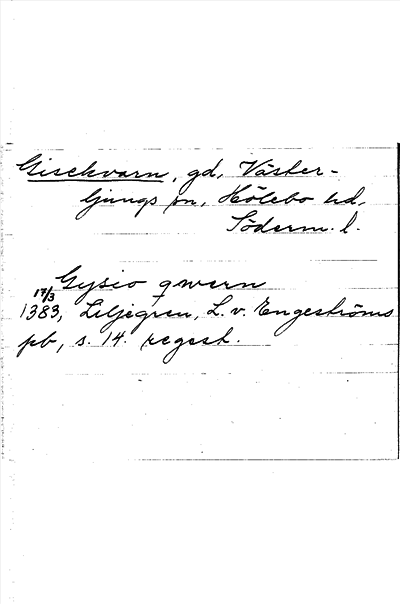 Gisekvarn, gd, Väster-
ljungs sn, Hölebo hd,
Söderm. l.
Gysio qwern
17/3
1383, Liljegren, L. v. Engeströms
pb, s. 14. regest.